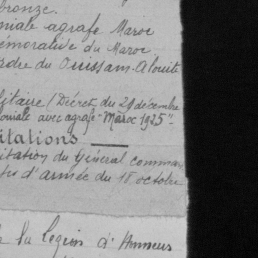 bronze.
niale agrafe Maroc
émorative du Maroc
rdre du Ouissam Alouite
litaire / Décret du 29 décembre
oniale avec agrafe "Maroc 1925"
itations
itation du Général comman
d'armée du 18 octobre
la Légion d'Honneur